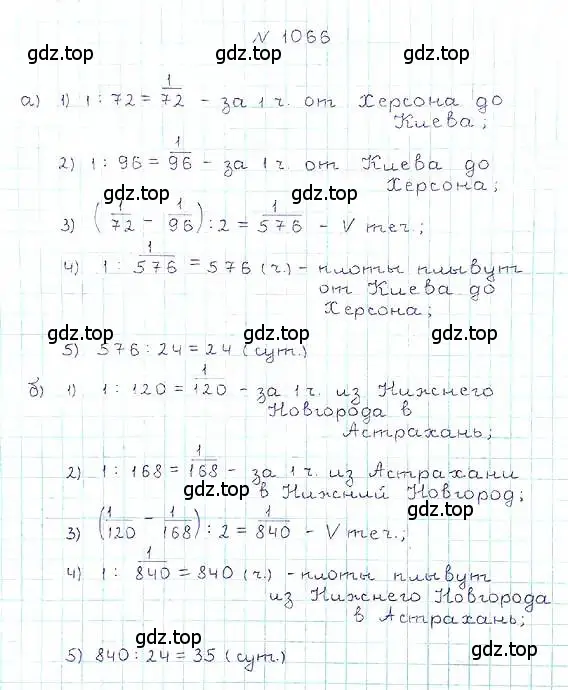 N 1066
gdz.top gdz.top
а) 1) 1 : 72 = 1/72 - за 1 ч. от Херсона до
Киева;
2) 1 : 96 = 1/96 - за 1 ч. от Киева до
Херсона;
gdz.top gdz.top
3) (1/72 - 1/96) : 2 = 1/576 - V теч.;
4) 1 : 1/576 = 576 (ч.) - плоты плывут
от Киева до
Херсона;
gdz.top gdz.top
5) 576 : 24 = 24 (сут.)
б) 1) 1 : 120 = 1/120 - за 1 ч. из Нижнего
Новгорода в
Астрахань;
gdz.top gdz.top
2) 1 : 168 = 1/168 - за 1 ч. из Астрахани
в Нижний Новгород;
gdz.top gdz.top
3) (1/120 - 1/168) : 2 = 1/840 - V теч.;
4) 1 : 1/840 = 840 (ч.) - плоты плывут
из Нижнего Новгорода
в Астрахань;
gdz.top gdz.top
5) 840 : 24 = 35 (сут.)
gdz.top